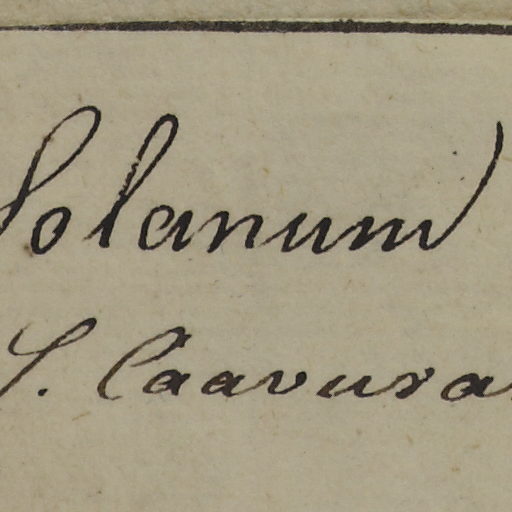 Solanum
S. Caavura